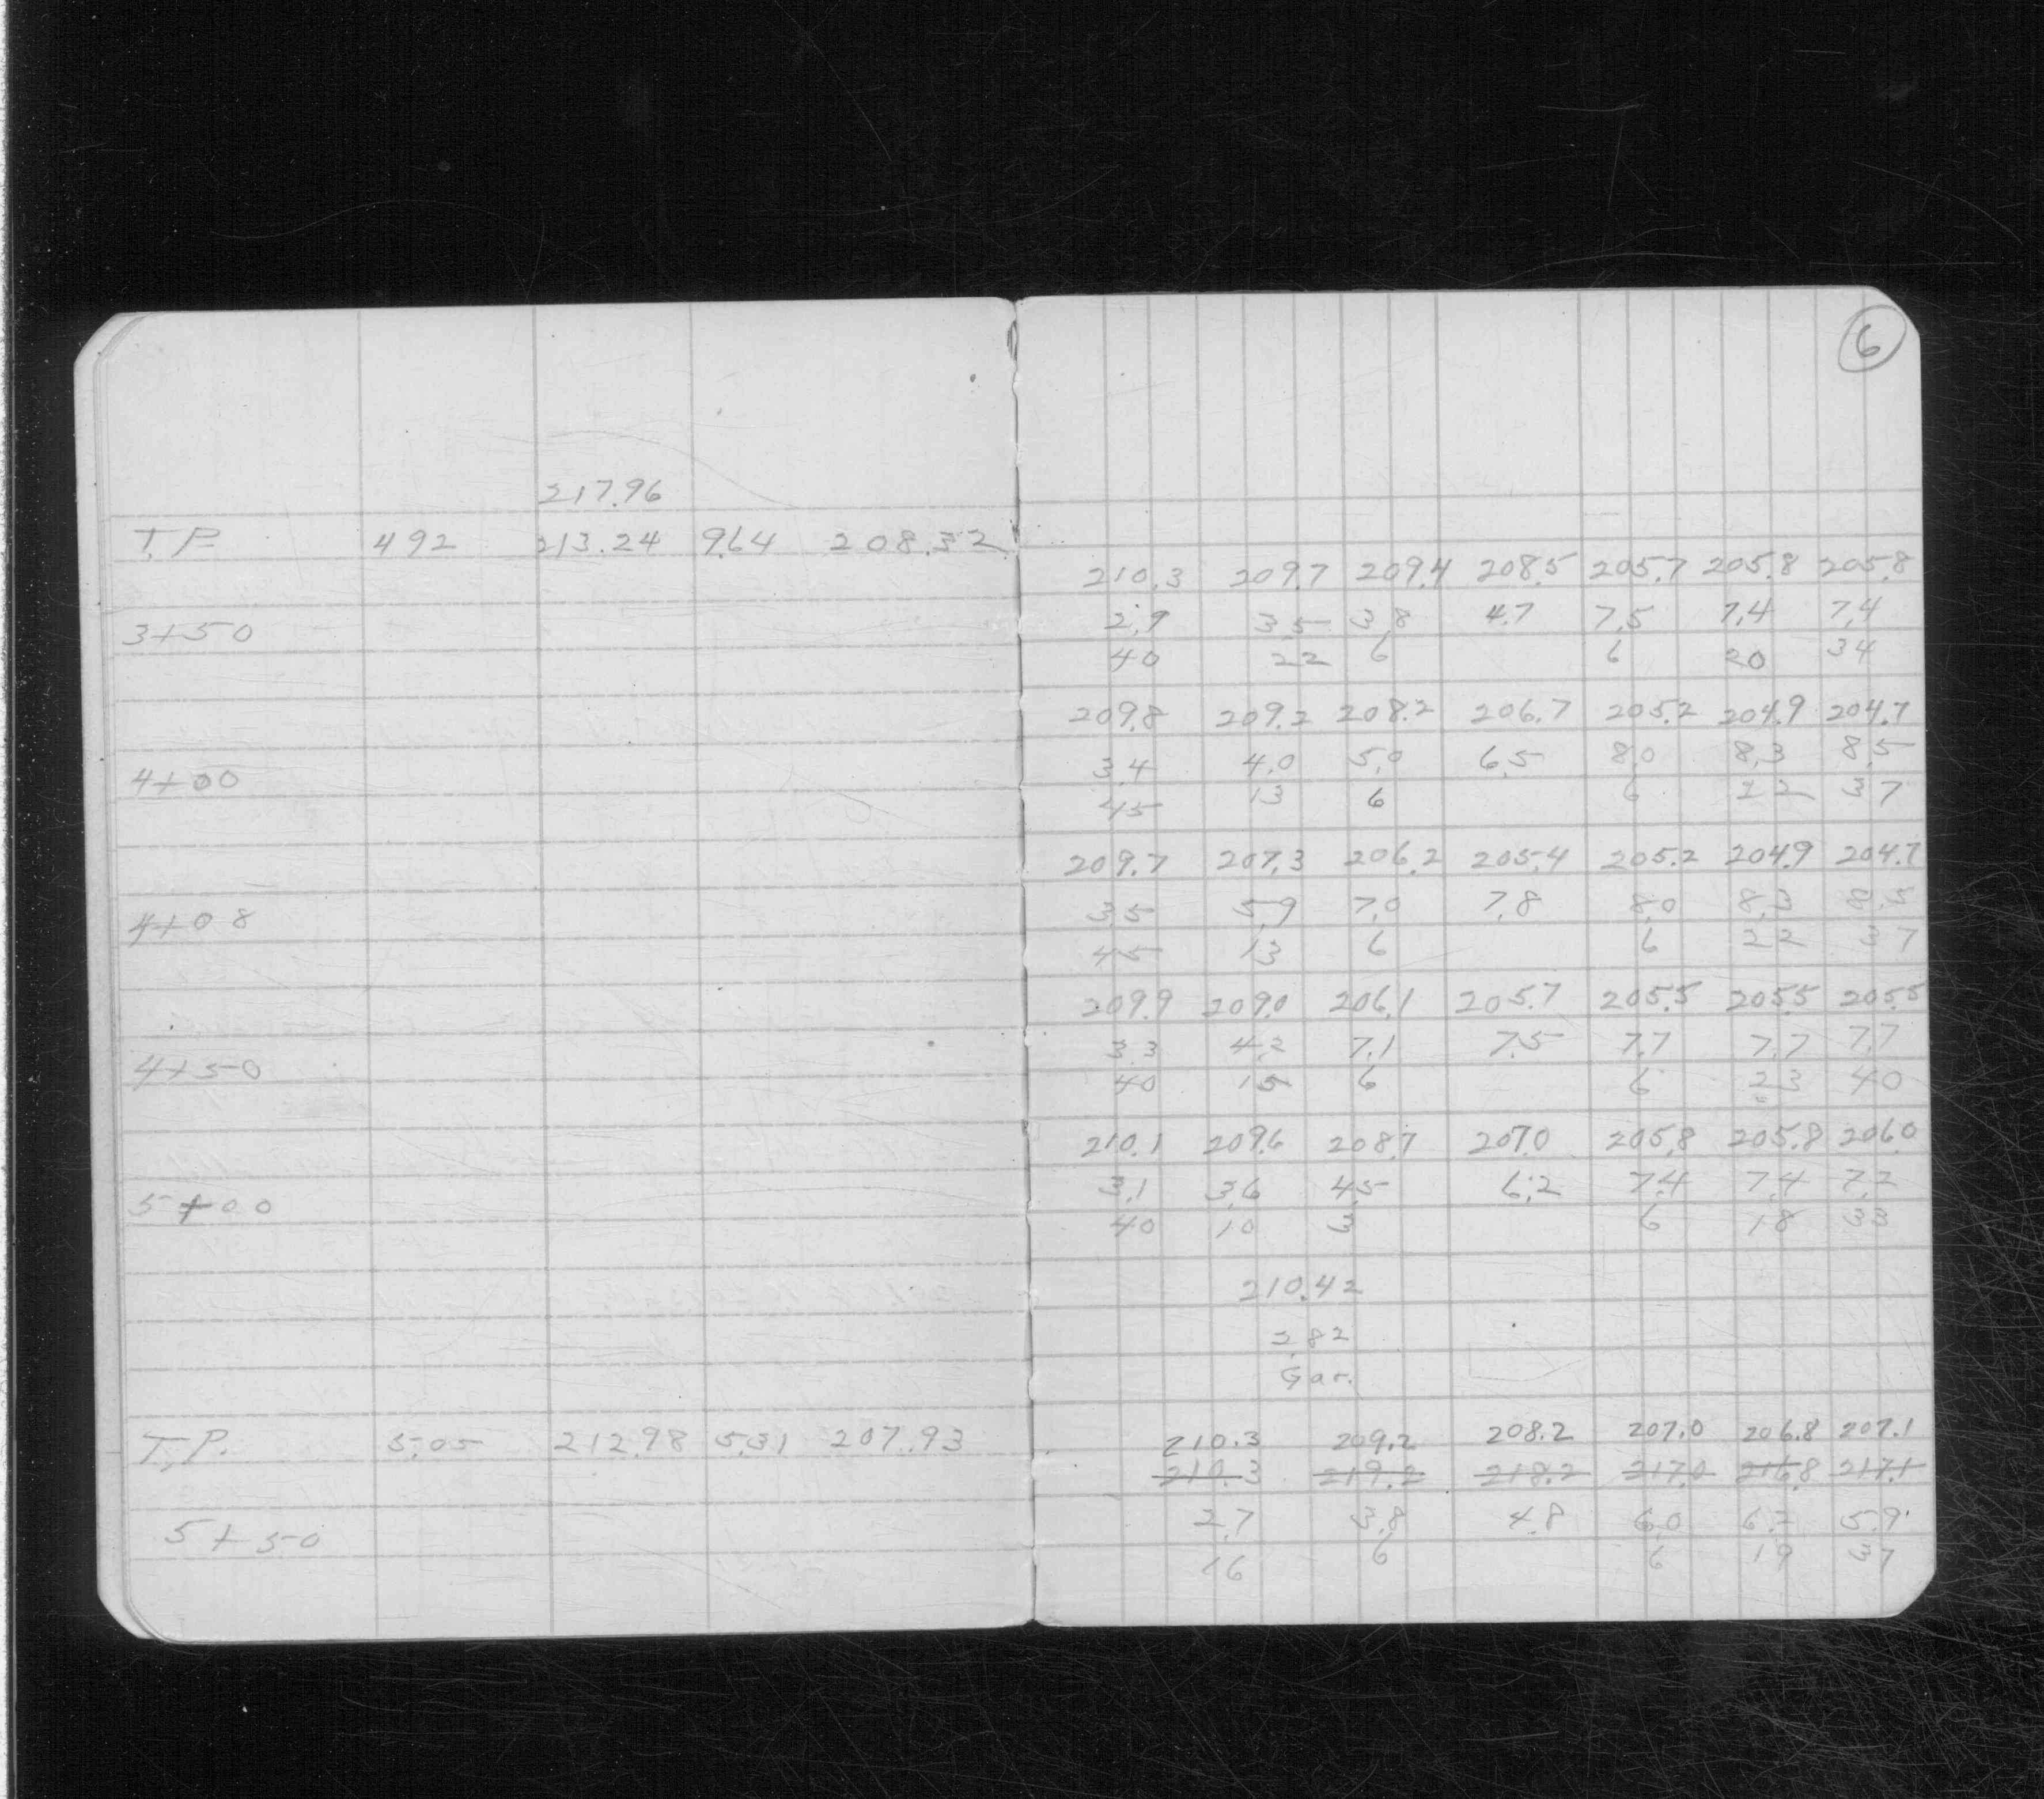 6
217.96
T.P. 4 92 213.24 9.64 208.32
210.3 209.7 209.4 208.5 205.7 205.8 205.8
3+50 2.9 3.5 3.8 4.7 7.5 7.4 7.4
40 22 6 6 20 34
209.8 209.2 208.2 206.7 205.2 204.9 204.7
4+00 3.4 4.0 5.0 6.5 8.0 8.3 8.5
45 13 6 6 22 37
209.7 207.3 206.2 205.4 205.2 204.9 204.7
4+08 3.5 5.9 7.0 7.8 8.0 8.3 8.5
45 13 6 6 22 37
209.9 209.0 206.1 205.7 205.5 205.5 205.5
4+50 3.3 4.2 7.1 7.5 7.7 7.7 7.7
40 15 6 6 23 40
210.1 209.6 208.7 207.0 205.8 205.8 206.0
5+00 3.1 3.6 4.5 6.2 7.4 7.4 7.2
40 10 3 6 18 33
210.42
2.82
Gar.
T.P. 5.05 212.98 5.31 207.93 210.3 209.2 208.2 207.0 206.8 207.1
210.3 219.2 218.2 217.0 216.8 217.1
5+50 2.7 3.8 4.8 6.0 6.2 5.9
16 6 6 19 37